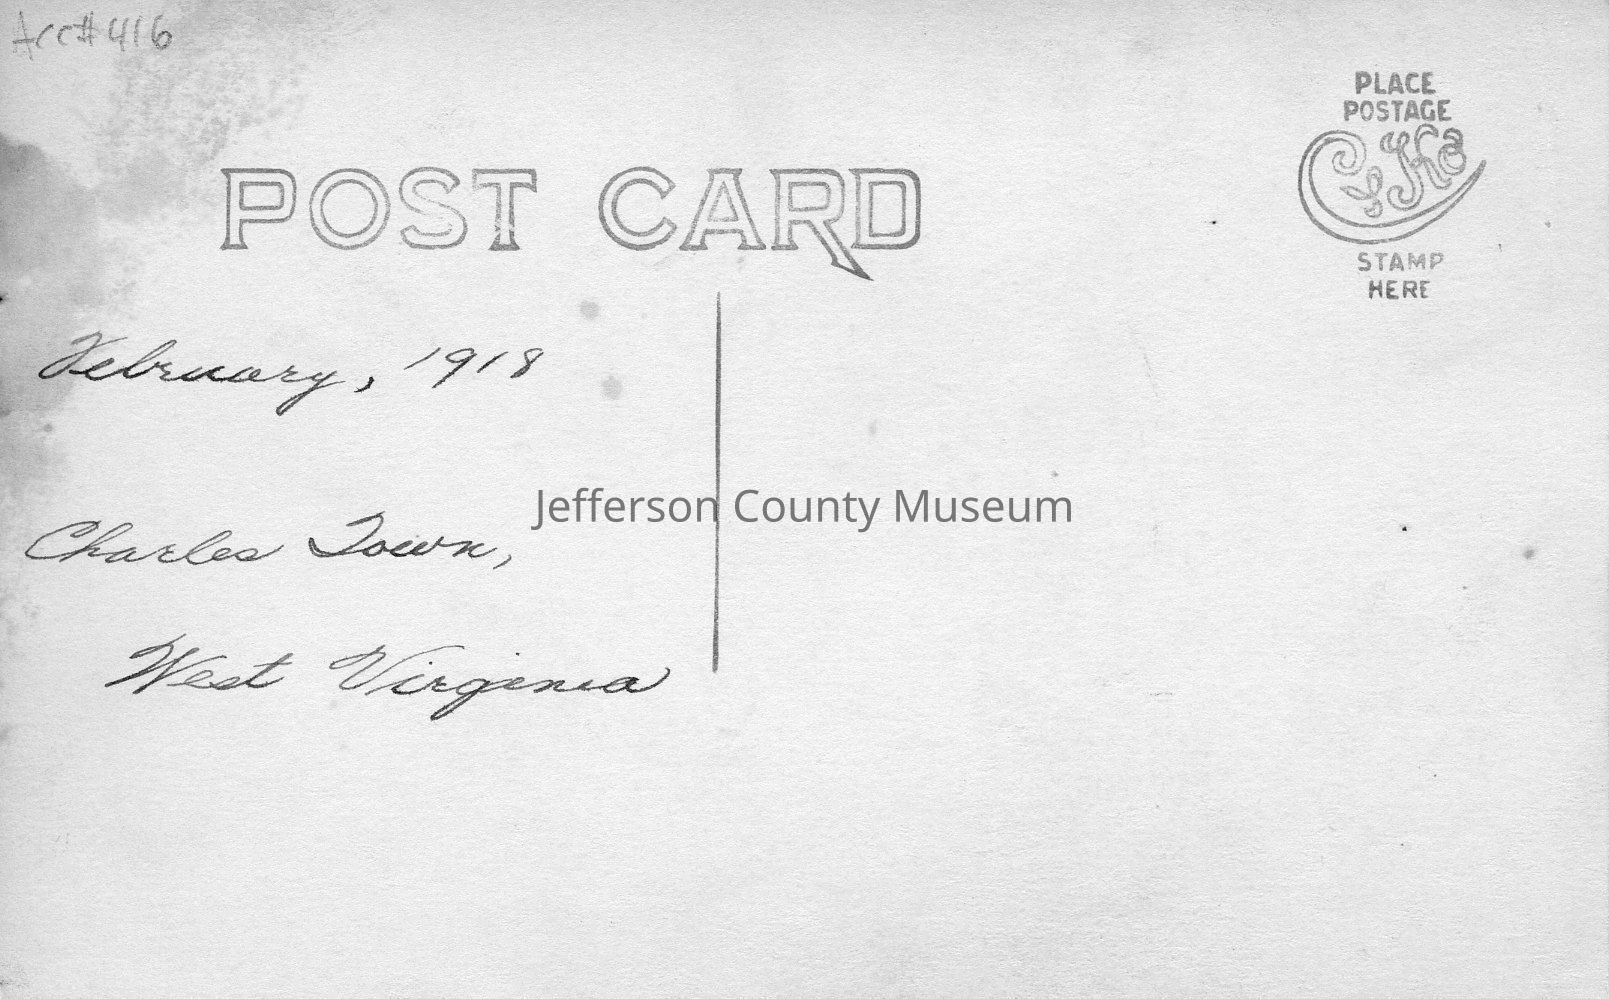 Acc# 416
PLACE
POSTAGE
Cyko
STAMP
HERE
POST CARD
February, 1918
Charles Town,
West Virginia
Jefferson County Museum